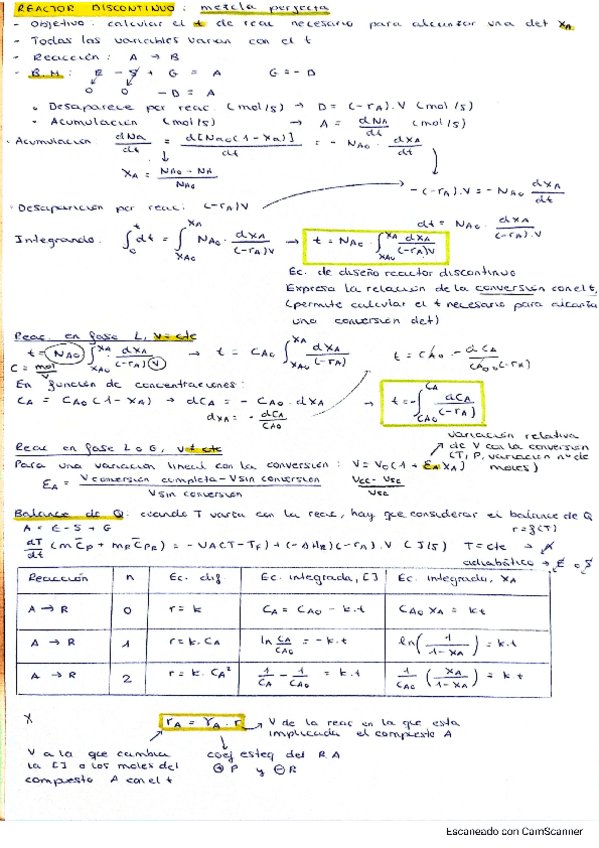 REACTOR DISCONTINUO: mezcla perfecta
· Objetivo: calcular el t de reac necesario para alcanzar una det XA
- Todas las variables varían con el t
- Reacción: A → B
- B.M: E - S + G = A    G = - D
0  0  - D = A
• Desaparece por reac. (mol/s) → D = (-rA).V (mol/s)
• Acumulación (mol/s) → A = dNA/dt (mol/s)
· Acumulación: dNA/dt = d[NA0(1-XA)]/dt = - NA0 · dXA/dt
XA = (NA0 - NA)/NA0
-(-rA).V = - NA0 dXA/dt
· Desaparición por reac: (-rA)V
dt = NA0 · dXA/((-rA).V)
Integrando: ∫0^t dt = ∫XA0^XA NA0 · dXA/((-rA)V) → t = NA0 · ∫XA0^XA dXA/((-rA)V)
Ec. de diseño reactor discontinuo
Expresa la relación de la conversión con el t,
(permite calcular el t necesario para alcanzar
una conversión det)
Reac. en fase L, V = cte
t = NA0 ∫XA0^XA dXA/((-rA)V) → t = CA0 ∫XA0^XA dXA/(-rA)    t = CA0 · -dCA/(CA0(-rA))
C = mol/V
En función de concentraciones:
CA = CA0(1-XA) → dCA = - CA0 · dXA → t = -∫CA0^CA dCA/(-rA)
dXA = - dCA/CA0
Reac en fase L o G, V ≠ cte
variación relativa
de V con la conversión
(T, P, variación nº de
moles)
Para una variación lineal con la conversión: V = V0(1 + EA XA)
EA = (V conversión completa - V sin conversión)/(V sin conversión)
Balance de Q: cuando T varía con la reac, hay que considerar el balance de Q
A = E - S + G    r = f(T)
dT/dt (m C̄P + mR C̄PR) = - UA(T - TF) + (-ΔHR)(-rA).V (J/s)    T = cte → A
adiabático → E o S
Reacción | n | Ec. dif. | Ec. integrada, [] | Ec. integrada, XA
A → R | 0 | r = k | CA = CA0 - k.t | CA0 XA = kt
A → R | 1 | r = k.CA | ln CA/CA0 = - k.t | ln(1/(1-XA)) = k.t
A → R | 2 | r = k.CA² | 1/CA - 1/CA0 = k.t | 1/CA0 (XA/(1-XA)) = kt
rA = γA · r → V de la reac en la que está
implicada el compuesto A
V a la que cambia
la [] o los moles del
compuesto A con el t
coef esteq del RA
⊕ P y ⊖ R
Escaneado con CamScanner